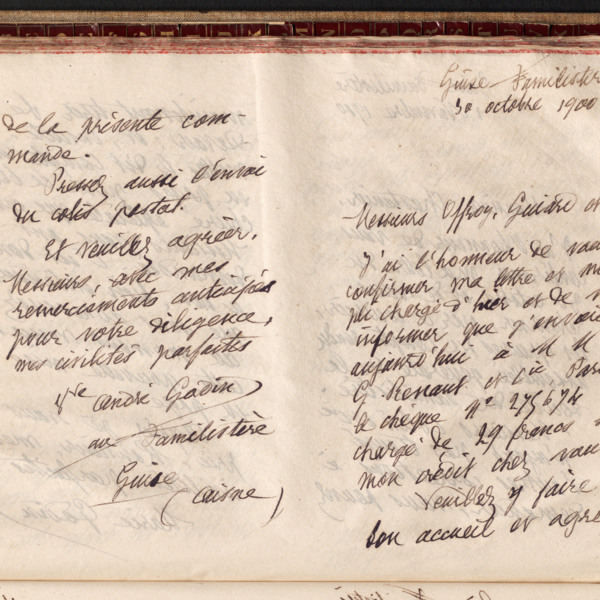 de la présente com
mande.
Pressez aussi l'envoi
du colis postal.
Et veuillez agréer,
Messieurs, avec mes
remerciements anticipés
pour votre diligence,
mes civilités parfaites
Vve andré Godin
au Familistère
Guise
(aisne)
Guise Familistère
30 octobre 1900
Messieurs Offroy, Guiard et
J'ai l'honneur de vous
confirmer ma lettre et mon
pli chargé d'hier et de
informer que j'envoie
aujourd'hui à M M
G. Renaut et Cie, Paris
le chèque N° 275674
chargé de 29 francs
mon crédit chez vous
Veuillez y faire
bon accueil et agré